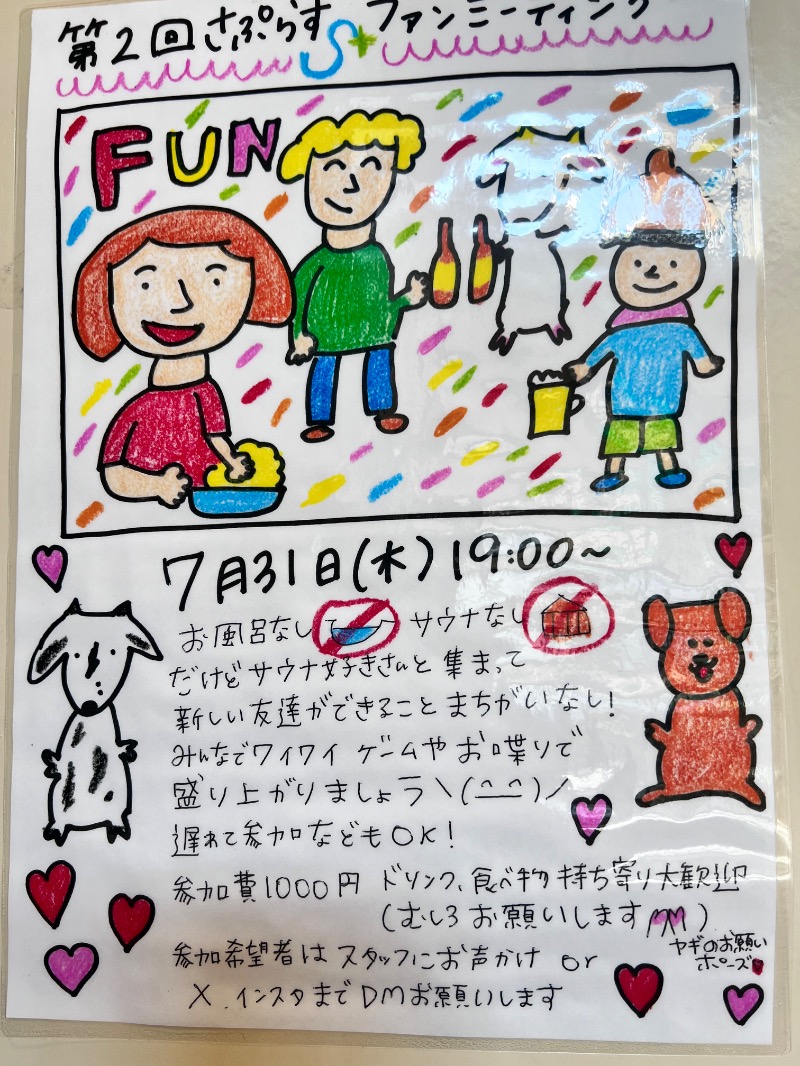 第2回さぷらすS+ファンミーティング
FUN
7月31日(水)19:00~
お風呂なし サウナなし
だけどサウナ好きさんと集まって
新しい友達ができることまちがいなし!
みんなでワイワイ ゲームやお喋りで
盛り上がりましょう\(^^)/
遅れて参加などもOK!
参加費1000円 ドリンク、食べ物持ち寄り大歓迎
(むしろお願いします )
ヤギのお願い
ポーズ
参加希望者はスタッフにお声かけ or
X.インスタまでDMお願いします